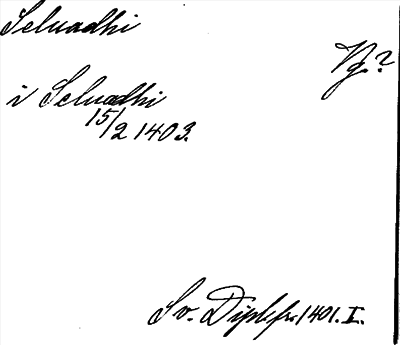 Seluadhi
Vg?
i Seluadhi
15/2 1403.
Sv. Dipl. fr. 1401. I.